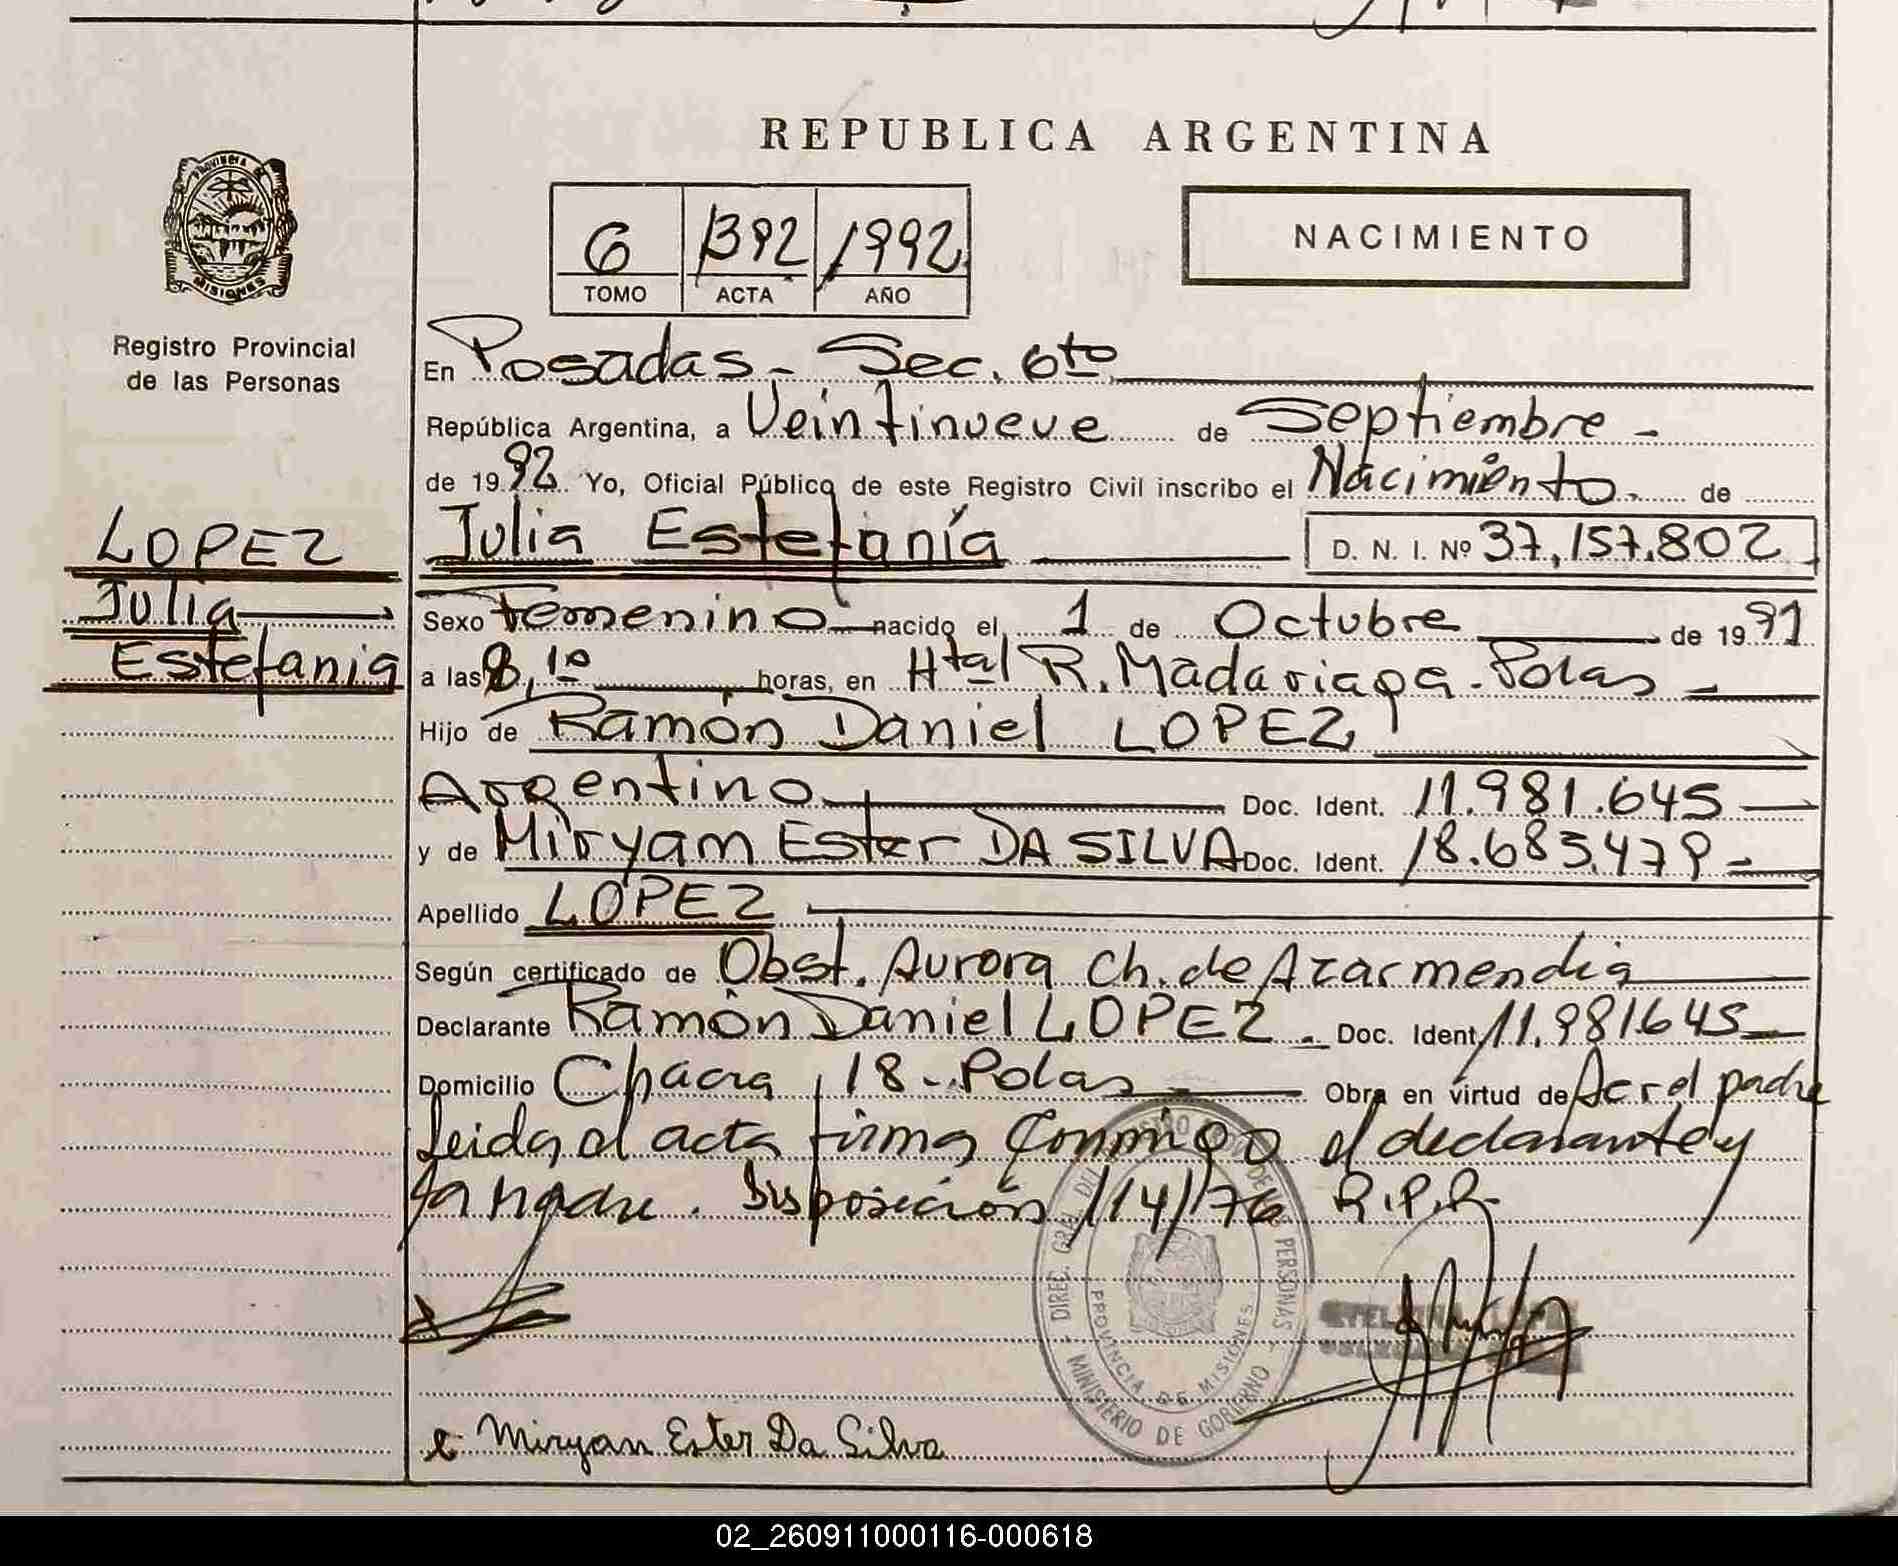 REPUBLICA ARGENTINA
PROVINCIA DE
MISIONES
Registro Provincial
de las Personas
6 1392 1992
TOMO ACTA AÑO
NACIMIENTO
En Posadas - Sec. 6to
República Argentina, a Veintinueve de Septiembre -
de 1992 Yo, Oficial Público de este Registro Civil inscribo el Nacimiento. de
LOPEZ
Julia
Estefania
Julia Estefanía D. N. I. Nº 37,157.802
Sexo Femenino nacido el 1 de Octubre de 1991
a las 8,10 horas, en Htal R. Madariaga - Pdas -
Hijo de Ramón Daniel LOPEZ
Argentino Doc. Ident. 11.981.645 -
y de Miryam Ester DA SILVA Doc. Ident. 18.683.479 -
Apellido LOPEZ
Según certificado de Obst. Aurora Ch. de Azarmendia
Declarante Ramón Daniel LOPEZ. - Doc. Ident. 11.981645 -
Domicilio Chacra 18 - Pdas - Obra en virtud de Ser el padre
Leida el acta firma Conmigo el declarante y
la Madre. Disposición 114/76 R.P.P.
DIREC. GRAL. DEL REGISTRO PROV. DE LAS PERSONAS
PROVINCIA DE MISIONES
MINISTERIO DE GOBIERNO
Miryan Ester Da Silva
02_260911000116-000618